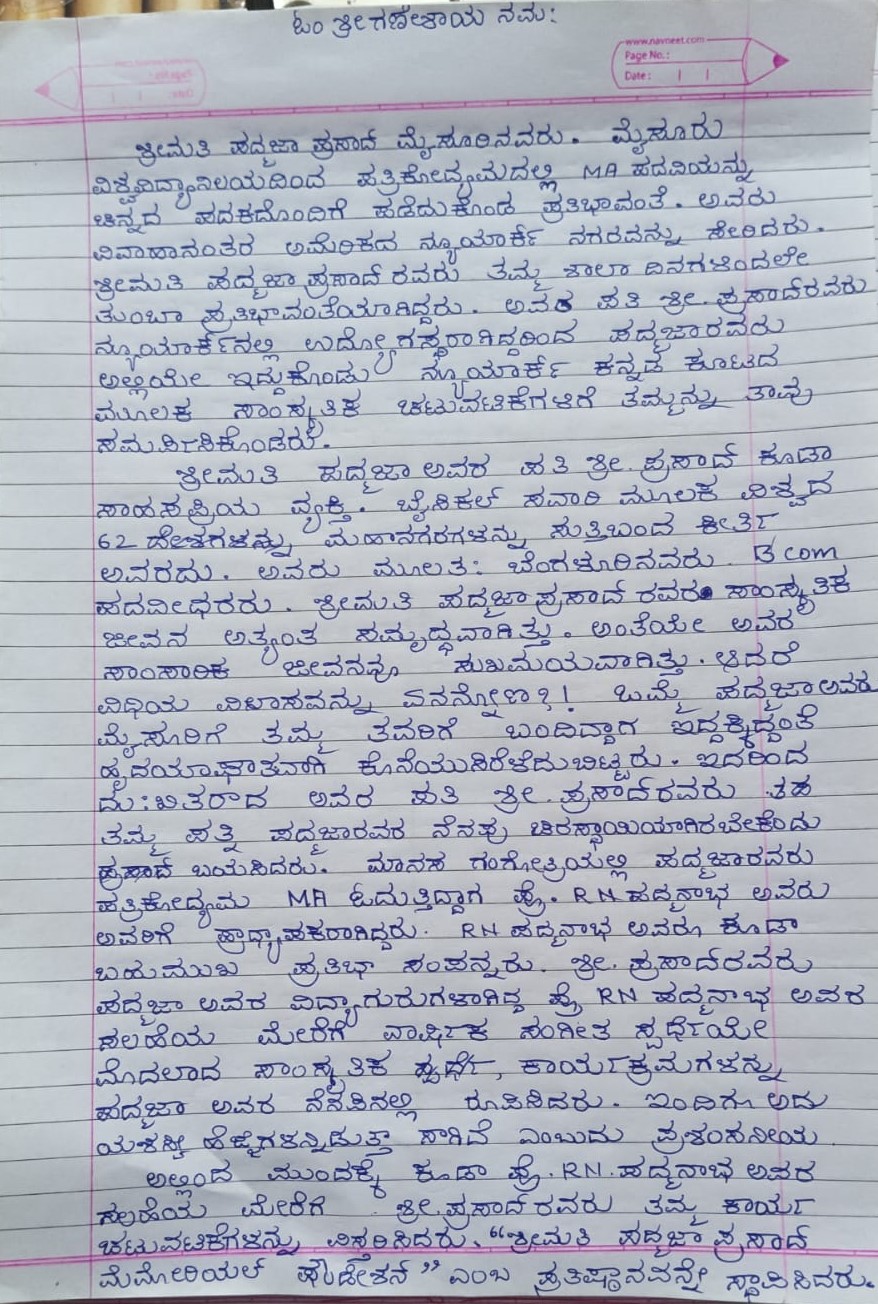 ಓಂ ಶ್ರೀ ಗಣೇಶಾಯ ನಮಃ
www.navneet.com
Page No.:
Date:
ಶ್ರೀಮತಿ ಪದ್ಮಜಾ ಪ್ರಸಾದ್ ಮೈಸೂರಿನವರು. ಮೈಸೂರು
ವಿಶ್ವವಿದ್ಯಾನಿಲಯದಿಂದ ಪತ್ರಿಕೋದ್ಯಮದಲ್ಲಿ MA ಪದವಿಯನ್ನು
ಚಿನ್ನದ ಪದಕದೊಂದಿಗೆ ಪಡೆದುಕೊಂಡ ಪ್ರತಿಭಾವಂತೆ. ಅವರು
ವಿವಾಹಾನಂತರ ಅಮೆರಿಕದ ನ್ಯೂಯಾರ್ಕ್ ನಗರವನ್ನು ಸೇರಿದರು.
ಶ್ರೀಮತಿ ಪದ್ಮಜಾ ಪ್ರಸಾದ್ ರವರು ತಮ್ಮ ಶಾಲಾ ದಿನಗಳಿಂದಲೇ
ತುಂಬಾ ಪ್ರತಿಭಾವಂತೆಯಾಗಿದ್ದರು. ಅವರ ಪತಿ ಶ್ರೀ. ಪ್ರಸಾದ್‌ರವರು
ನ್ಯೂಯಾರ್ಕ್‌ನಲ್ಲಿ ಉದ್ಯೋಗಸ್ಥರಾಗಿದ್ದರಿಂದ ಪದ್ಮಜಾರವರು
ಅಲ್ಲಿಯೇ ಇದ್ದುಕೊಂಡು ನ್ಯೂಯಾರ್ಕ್ ಕನ್ನಡ ಕೂಟದ
ಮೂಲಕ ಸಾಂಸ್ಕೃತಿಕ ಚಟುವಟಿಕೆಗಳಿಗೆ ತಮ್ಮನ್ನು ತಾವು
ಸಮರ್ಪಿಸಿಕೊಂಡರು.
ಶ್ರೀಮತಿ ಪದ್ಮಜಾ ಅವರ ಪತಿ ಶ್ರೀ. ಪ್ರಸಾದ್ ಕೂಡಾ
ಸಾಹಸಪ್ರಿಯ ವ್ಯಕ್ತಿ. ಬೈಸಿಕಲ್ ಸವಾರಿ ಮೂಲಕ ವಿಶ್ವದ
62 ದೇಶಗಳನ್ನು ಮಹಾನಗರಗಳನ್ನು ಸುತ್ತಿಬಂದ ಕೀರ್ತಿ
ಅವರದು. ಅವರು ಮೂಲತಃ ಬೆಂಗಳೂರಿನವರು. B com
ಪದವೀಧರರು. ಶ್ರೀಮತಿ ಪದ್ಮಜಾ ಪ್ರಸಾದ್ ರವರ ಸಾಂಸ್ಕೃತಿಕ
ಜೀವನ ಅತ್ಯಂತ ಸಮೃದ್ಧವಾಗಿತ್ತು. ಅಂತೆಯೇ ಅವರ
ಸಾಂಸಾರಿಕ ಜೀವನವೂ ಸುಖಮಯವಾಗಿತ್ತು. ಆದರೆ
ವಿಧಿಯ ವಿಲಾಸವನ್ನು ಏನನ್ನೋಣ?! ಒಮ್ಮೆ ಪದ್ಮಜಾ ಅವರು
ಮೈಸೂರಿಗೆ ತಮ್ಮ ತವರಿಗೆ ಬಂದಿದ್ದಾಗ ಇದ್ದಕ್ಕಿದ್ದಂತೆ
ಹೃದಯಾಘಾತವಾಗಿ ಕೊನೆಯುಸಿರೆಳೆದುಬಿಟ್ಟರು. ಇದರಿಂದ
ದುಃಖಿತರಾದ ಅವರ ಪತಿ ಶ್ರೀ. ಪ್ರಸಾದ್‌ರವರು
ತಮ್ಮ ಪತ್ನಿ ಪದ್ಮಜಾರವರ ನೆನಪು ಚಿರಸ್ಥಾಯಿಯಾಗಿರಬೇಕೆಂದು
ಪ್ರಸಾದ್ ಬಯಸಿದರು. ಮಾನಸ ಗಂಗೋತ್ರಿಯಲ್ಲಿ ಪದ್ಮಜಾರವರು
ಪತ್ರಿಕೋದ್ಯಮ MA ಓದುತ್ತಿದ್ದಾಗ ಪ್ರೊ. RN ಪದ್ಮನಾಭ ಅವರು
ಅವರಿಗೆ ಪ್ರಾಧ್ಯಾಪಕರಾಗಿದ್ದರು. RN ಪದ್ಮನಾಭ ಅವರೂ ಕೂಡಾ
ಬಹುಮುಖ ಪ್ರತಿಭಾ ಸಂಪನ್ನರು. ಶ್ರೀ. ಪ್ರಸಾದ್‌ರವರು
ಪದ್ಮಜಾ ಅವರ ವಿದ್ಯಾಗುರುಗಳಾಗಿದ್ದ ಪ್ರೊ RN ಪದ್ಮನಾಭ ಅವರ
ಸಲಹೆಯ ಮೇರೆಗೆ ವಾರ್ಷಿಕ ಸಂಗೀತ ಸ್ಪರ್ಧೆಯೇ
ಮೊದಲಾದ ಸಾಂಸ್ಕೃತಿಕ ಸ್ಪರ್ಧೆ, ಕಾರ್ಯಕ್ರಮಗಳನ್ನು
ಪದ್ಮಜಾ ಅವರ ನೆನಪಿನಲ್ಲಿ ರೂಪಿಸಿದರು. ಇಂದಿಗೂ ಅದು
ಯಶಸ್ವೀ ಹೆಜ್ಜೆಗಳನ್ನಿಡುತ್ತಾ ಸಾಗಿದೆ ಎಂಬುದು ಪ್ರಶಂಸನೀಯ.
ಅಲ್ಲಿಂದ ಮುಂದಕ್ಕೆ ಕೂಡಾ ಪ್ರೊ. RN. ಪದ್ಮನಾಭ ಅವರ
ಸಲಹೆಯ ಮೇರೆಗೆ ಶ್ರೀ. ಪ್ರಸಾದ್ ರವರು ತಮ್ಮ ಕಾರ್ಯ
ಚಟುವಟಿಕೆಗಳನ್ನು ವಿಸ್ತರಿಸಿದರು. "ಶ್ರೀಮತಿ ಪದ್ಮಜಾ ಪ್ರಸಾದ್
ಮೆಮೋರಿಯಲ್ ಫೌಂಡೇಶನ್" ಎಂಬ ಪ್ರತಿಷ್ಠಾನವನ್ನೇ ಸ್ಥಾಪಿಸಿದರು.